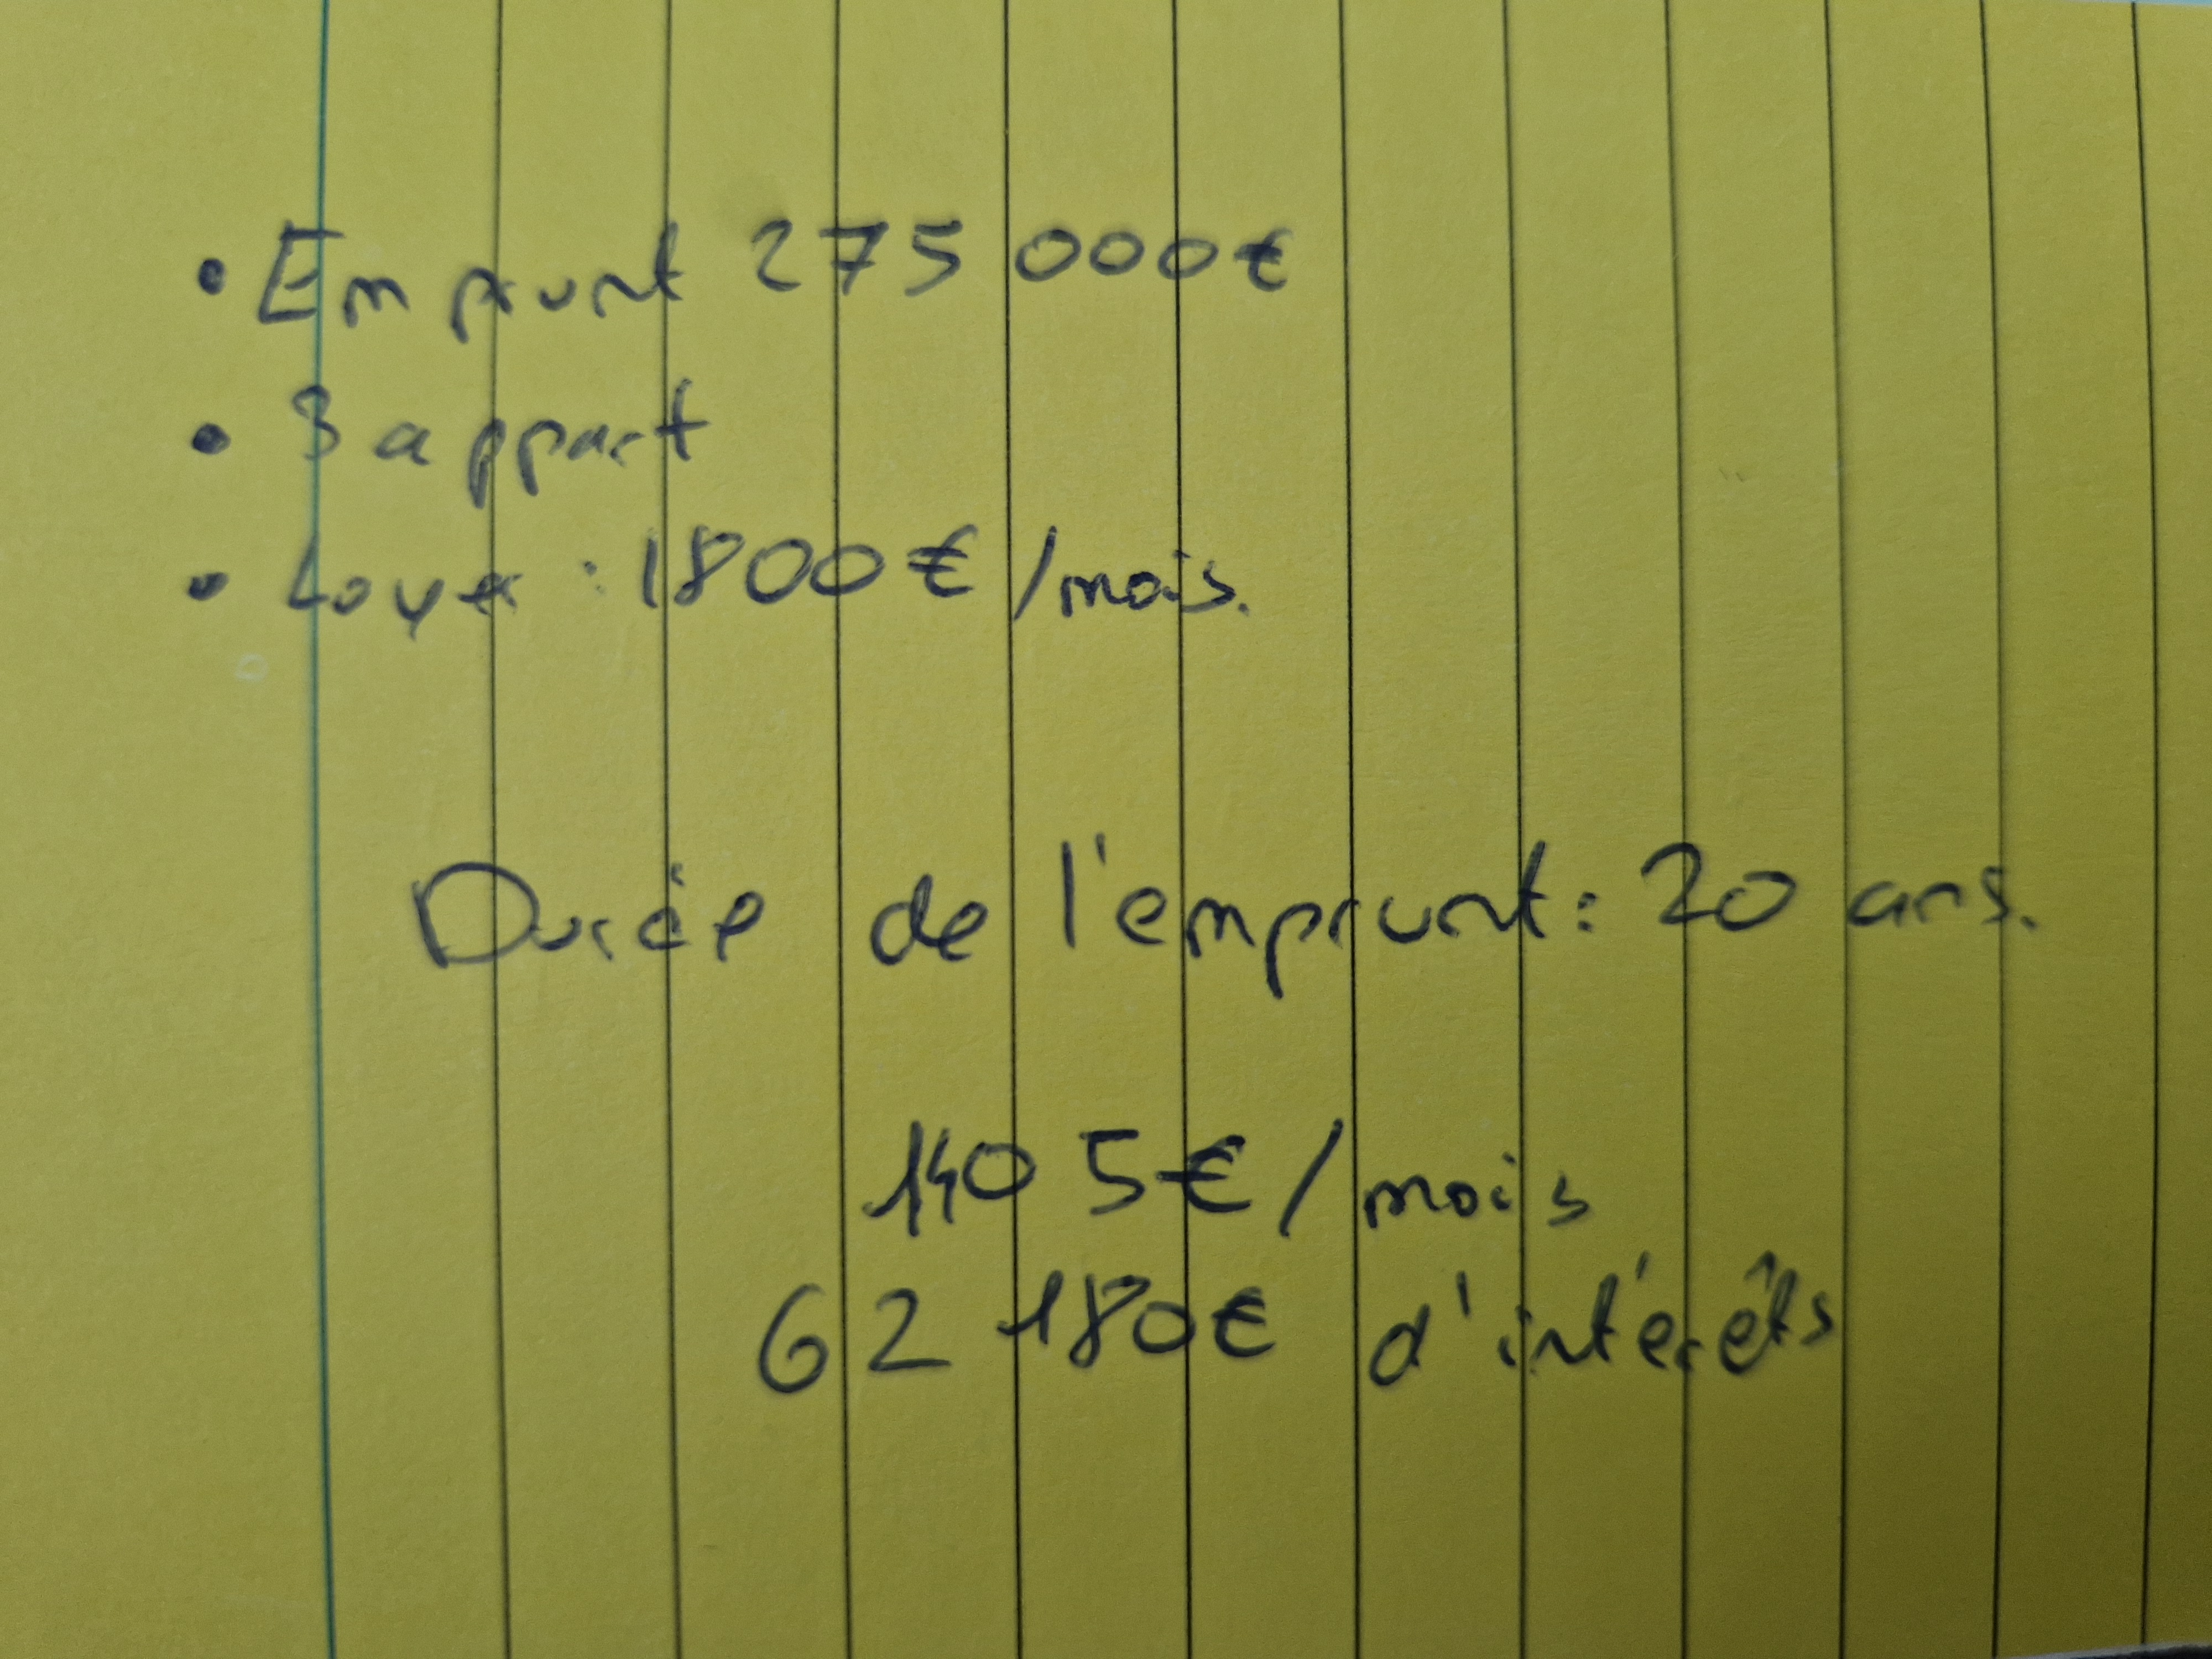 • Emprunt 275 000€
• 3 appart
• Loyer : 1800€ /mois.
Durée de l'emprunt : 20 ans.
1405€ / mois
62 180€ d'intérêts